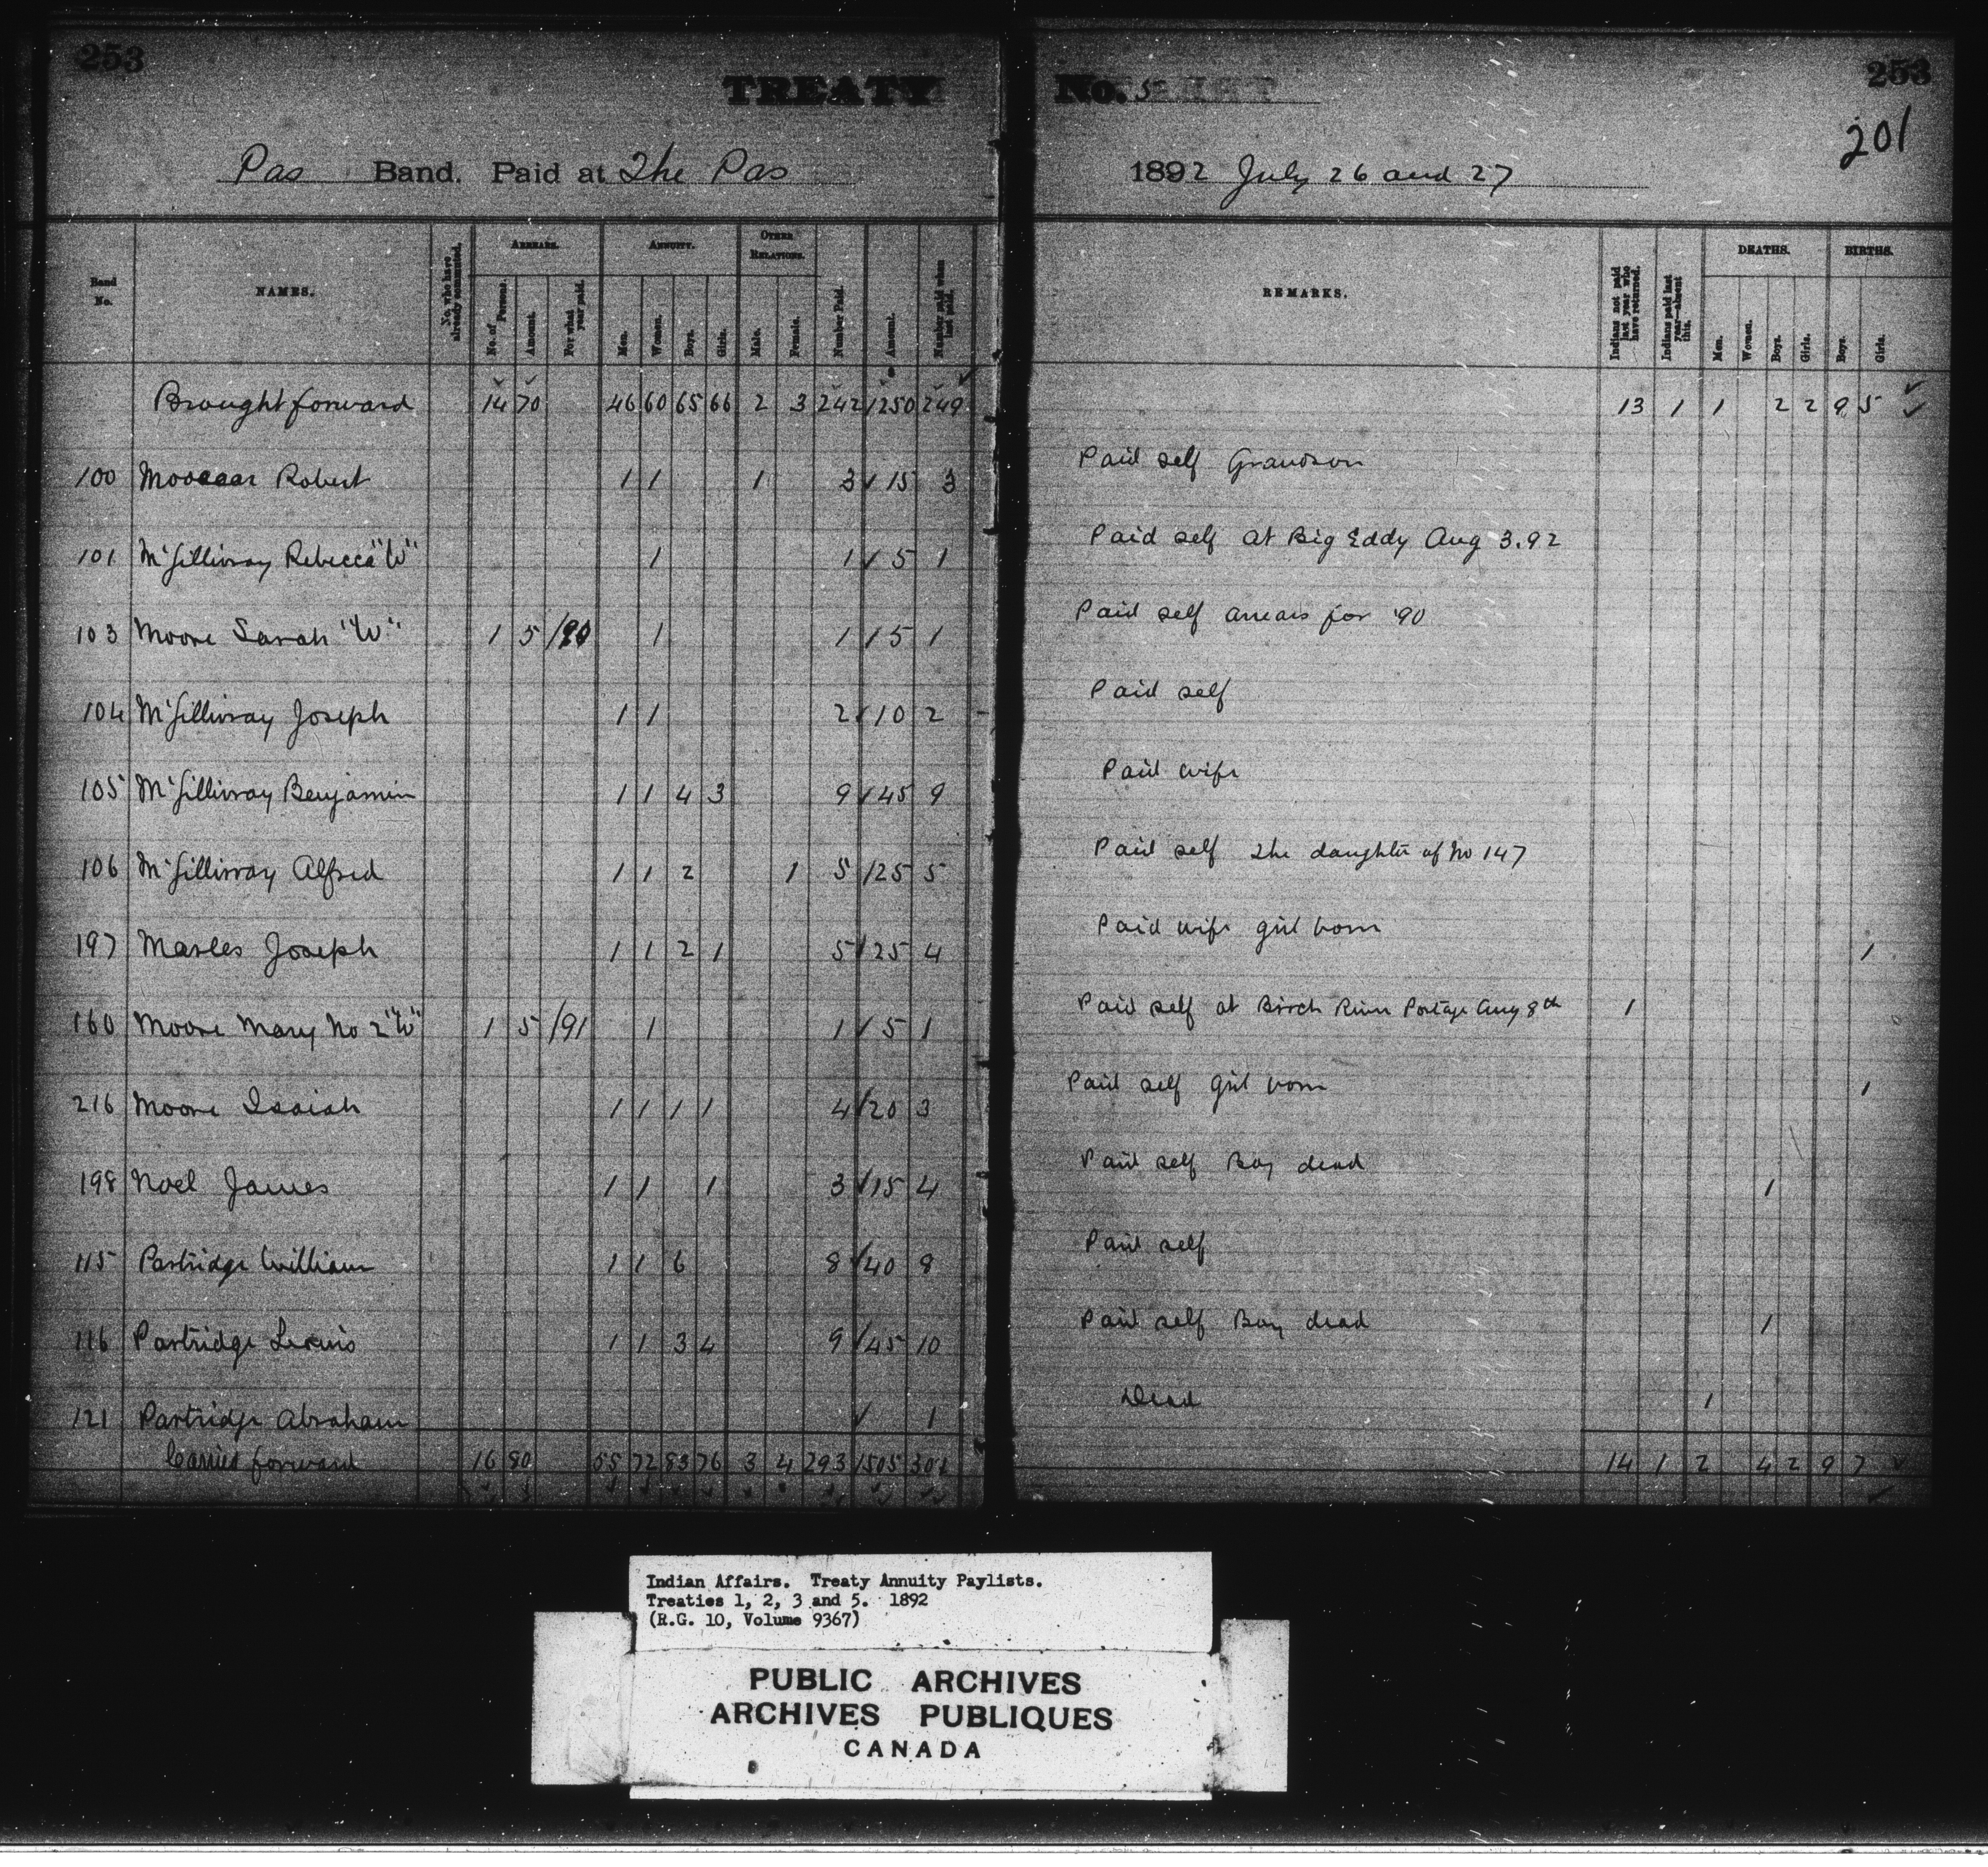 253
TREATY No. 5
253
201
Pas Band. Paid at The Pas 1892 July 26 and 27
Band No. NAMES. No. who have already commuted. ARREARS. No. of Persons. Amount. For what year paid. ANNUITY. Men. Women. Boys. Girls. OTHER RELATIONS. Male. Female. Number Paid. Amount. Number paid when last paid. REMARKS. Indians not paid last year who have returned. Indians paid last year—absent this. DEATHS. Men. Women. Boys. Girls. BIRTHS. Boys. Girls.
Brought forward 14 70 46 60 65 66 2 3 242 1250 249 13 1 1 2 2 9 5
100 Robert 1 1 1 3 15 3 Paid self Grandson
101 McGillivray Rebecca "W" 1 1 5 1 Paid self at Big Eddy Aug 3.92
103 Moore Sarah "W" 1 5 /90 1 1 5 1 Paid self arrears for '90
104 McGillivray Joseph 1 1 2 10 2 Paid self
105 McGillivray Benjamin 1 1 4 3 9 45 9 Paid wife
106 McGillivray Alfred 1 1 2 1 5 25 5 Paid self The daughter of No 147
197 Marles Joseph 1 1 2 1 5 25 4 Paid wife girl born 1
160 Moore Mary No 2 "W" 1 5 /91 1 1 5 1 Paid self at Birch River Portage Aug 8th 1
216 Moore Isaiah 1 1 1 1 4 20 3 Paid self girl born 1
198 Noel James 1 1 1 3 15 4 Paid self Boy dead 1
115 Partridge William 1 1 6 8 40 8 Paid self
116 Partridge 1 1 3 4 9 45 10 Paid self Boy dead 1
121 Partridge Abraham 1 Dead 1
Carried forward 16 80 55 72 83 76 3 4 293 1505 301 14 1 2 4 2 9 7
Indian Affairs. Treaty Annuity Paylists.
Treaties 1, 2, 3 and 5. 1892
(R.G. 10, Volume 9367)
PUBLIC ARCHIVES
ARCHIVES PUBLIQUES
CANADA